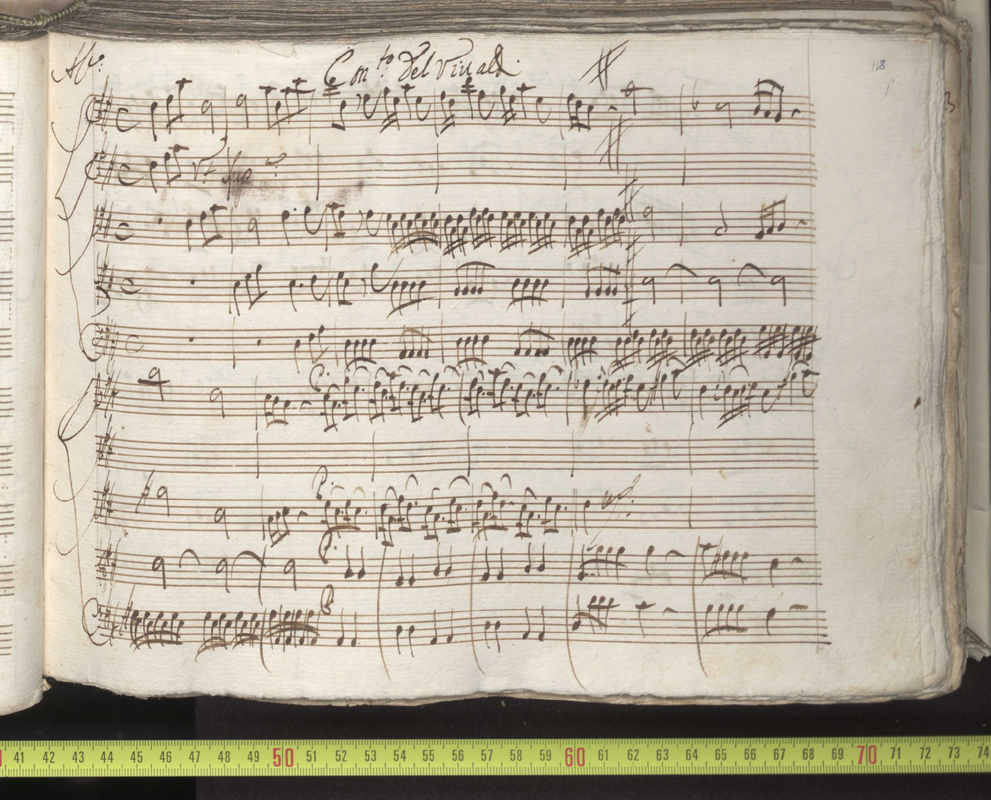 All.º Con.to Del Viualdi
118
3
P.
P.
P.
P.
41 42 43 44 45 46 47 48 49 50 51 52 53 54 55 56 57 58 59 60 61 62 63 64 65 66 67 68 69 70 71 72 73 74